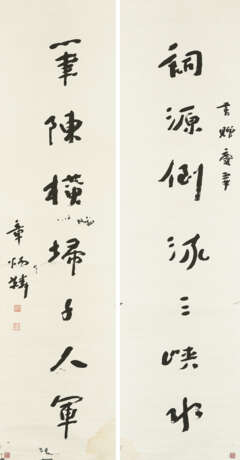 詞源倒流三峽水
筆陳橫掃千人軍
章炳麟